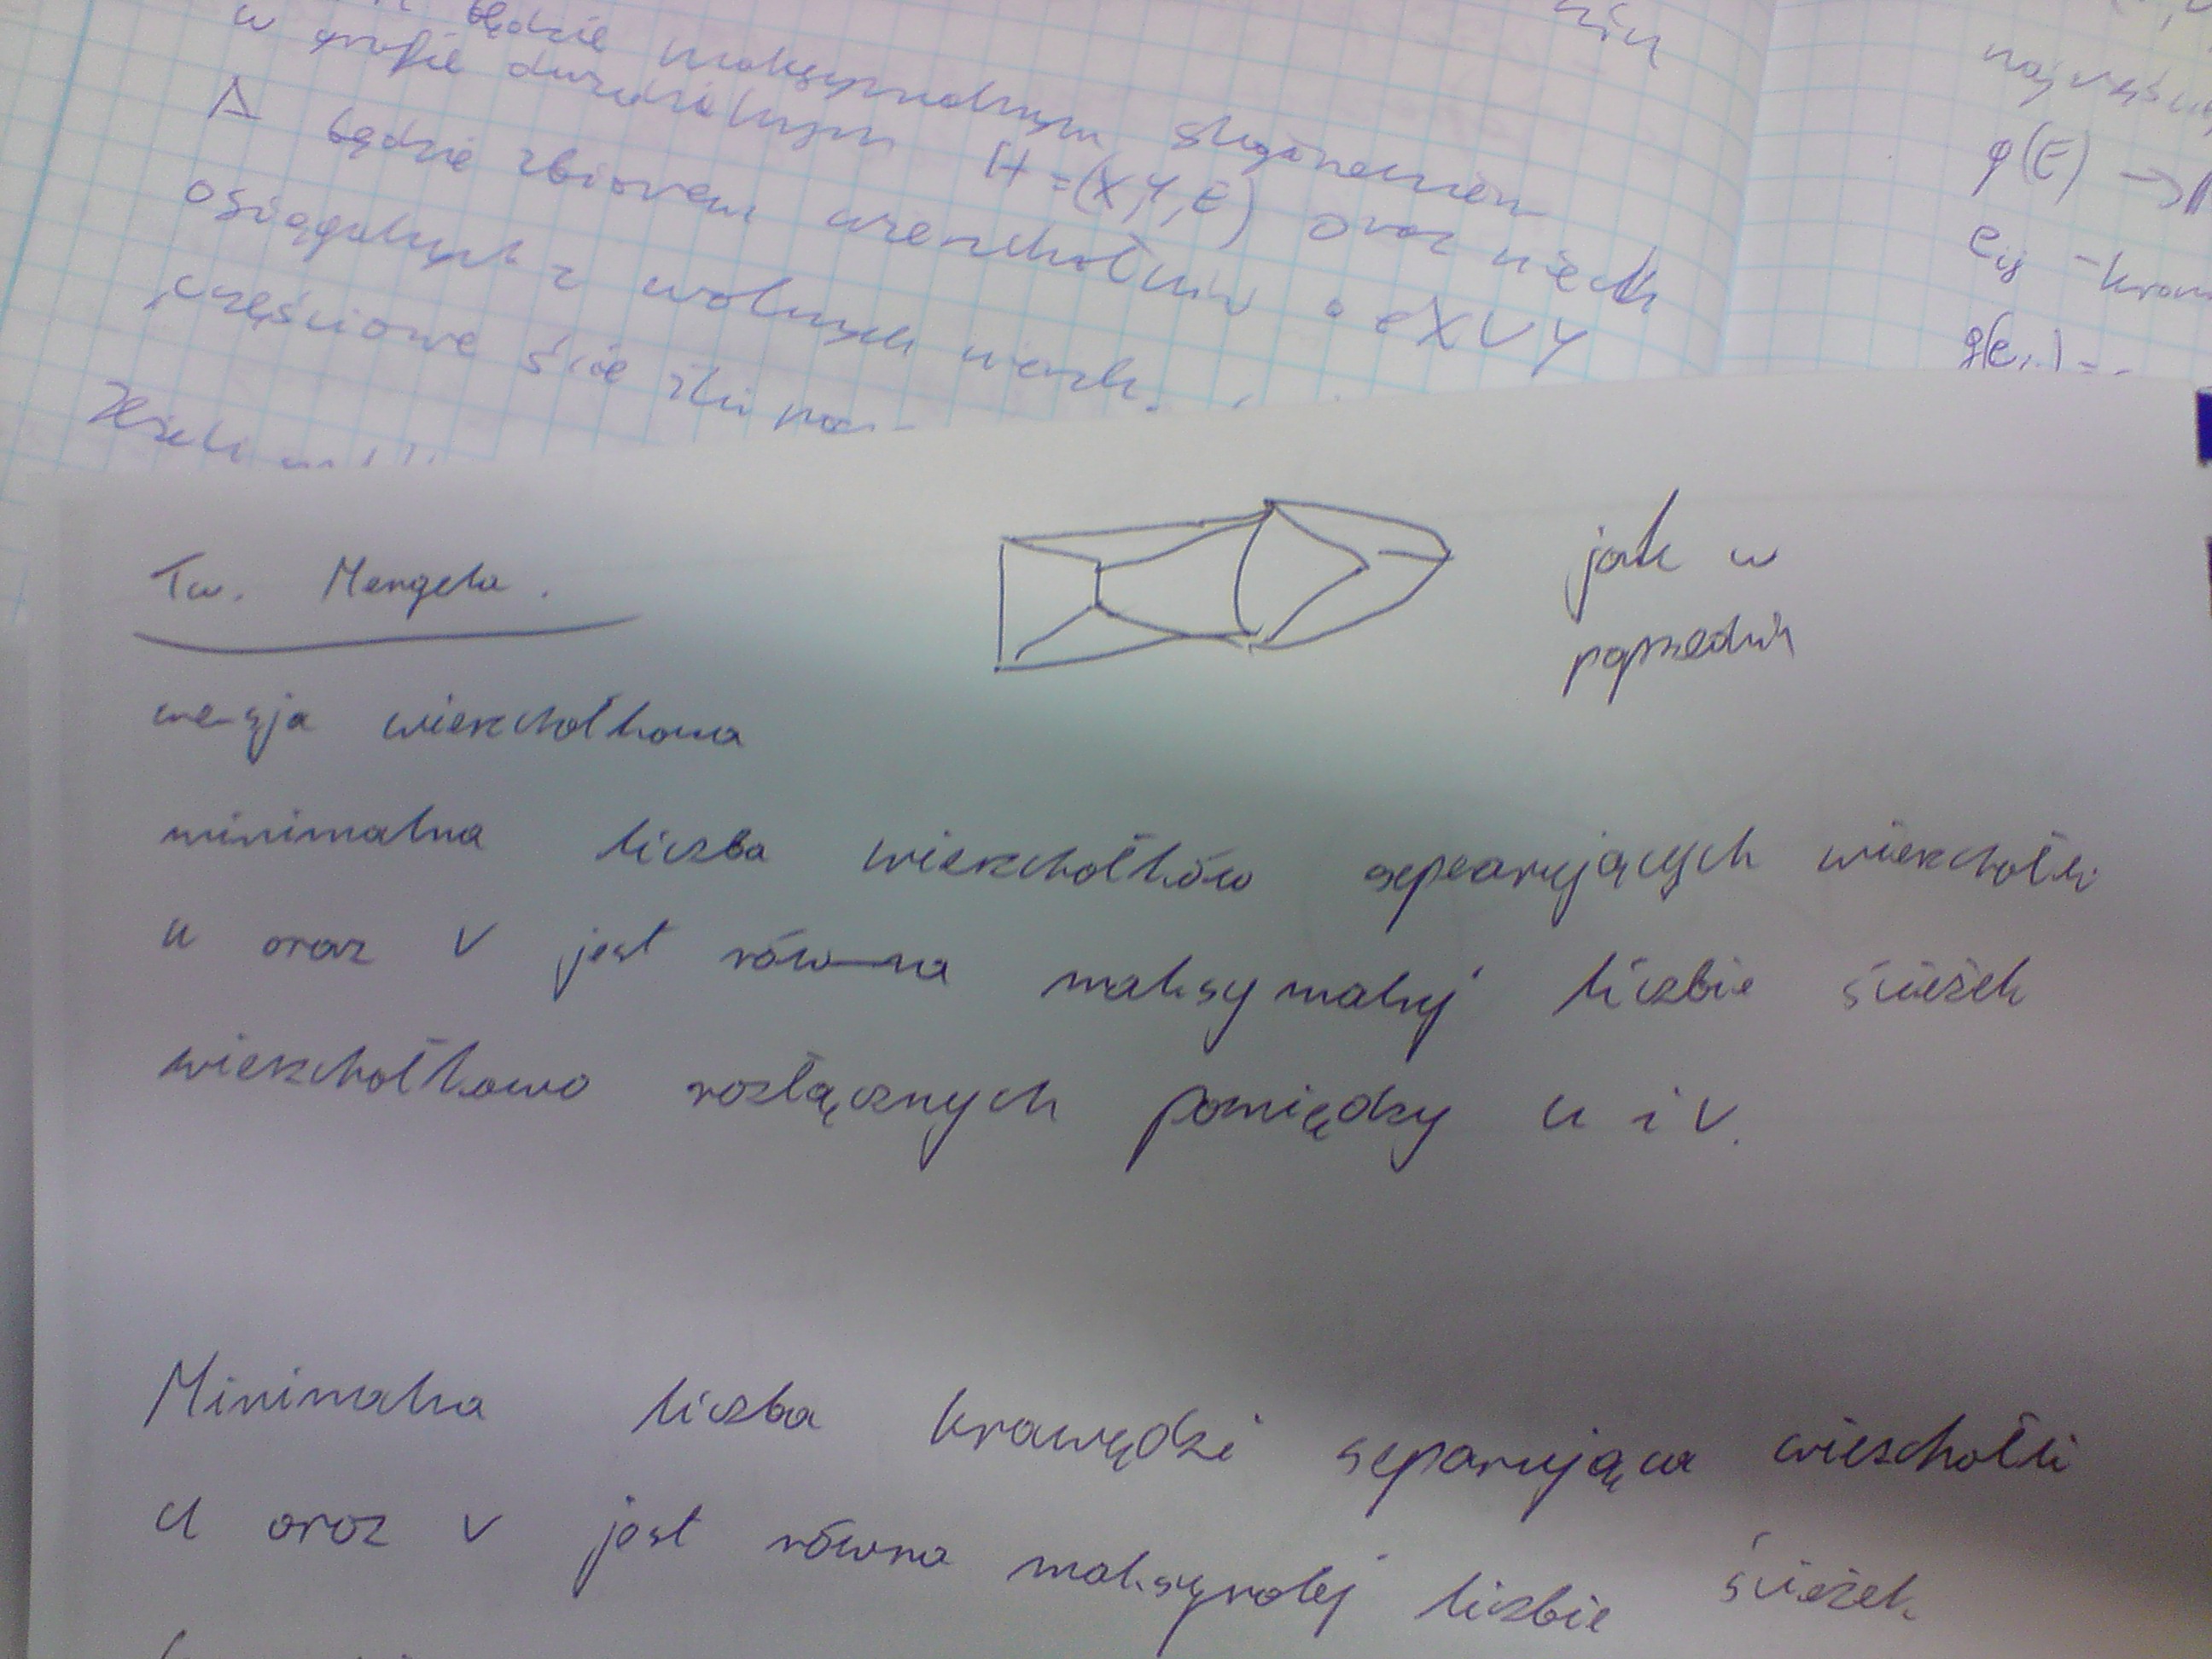 będzie maksymalnym skojarzeniem
w grafie dwudzielnym H=(X,Y,E) oraz niech
A będzie zbiorem wierzchołków ∈ X∪Y
osiągalnych z wolnych wierzch.
częściowe
najwięks
φ(E) →
eij - kraw
Tw. Mengera.
jak w
poprzednik
wersja wierzchołkowa
minimalna liczba wierzchołków sepearujących wierzchołki
u oraz v jest równa maksymalnej liczbie ścieżek
wierzchołkowo rozłącznych pomiędzy u i v.
Minimalna liczba krawędzi separująca wierzchołki
u oraz v jest równa maksymalej liczbie ścieżek